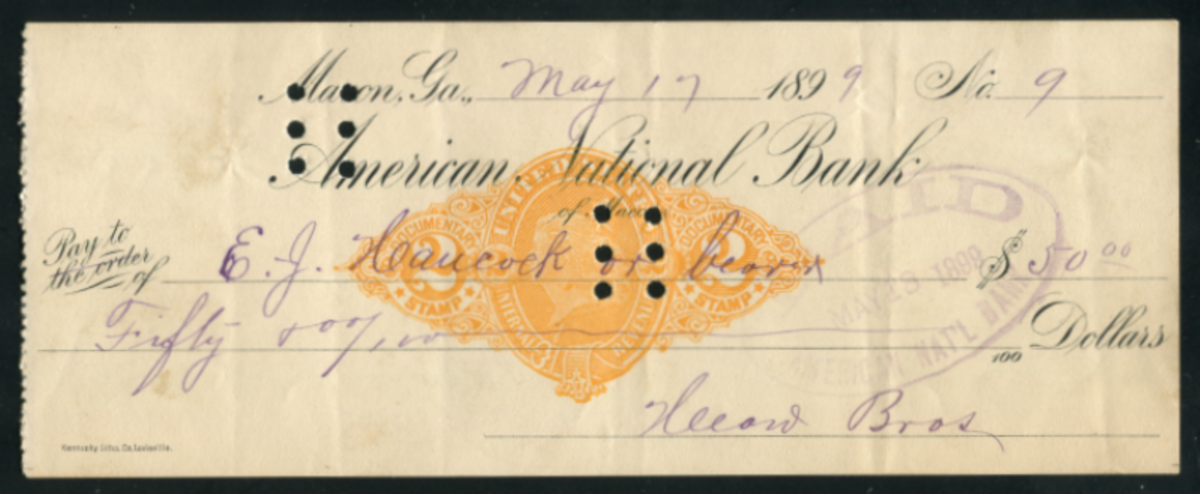 Macon, Ga., May 17 1899 No. 9
American National Bank
of Macon
Pay to
the order
of E. J. Hancock or bearer $ 50 00
Fifty 00/100 100 Dollars
Bros
PAID
MAY 18 1899
AMERICAN NAT'L BANK
UNITED STATES
INTERNAL REVENUE
DOCUMENTARY
2
STAMP
DOCUMENTARY
2
STAMP
Kentucky Litho. Co. Louisville.